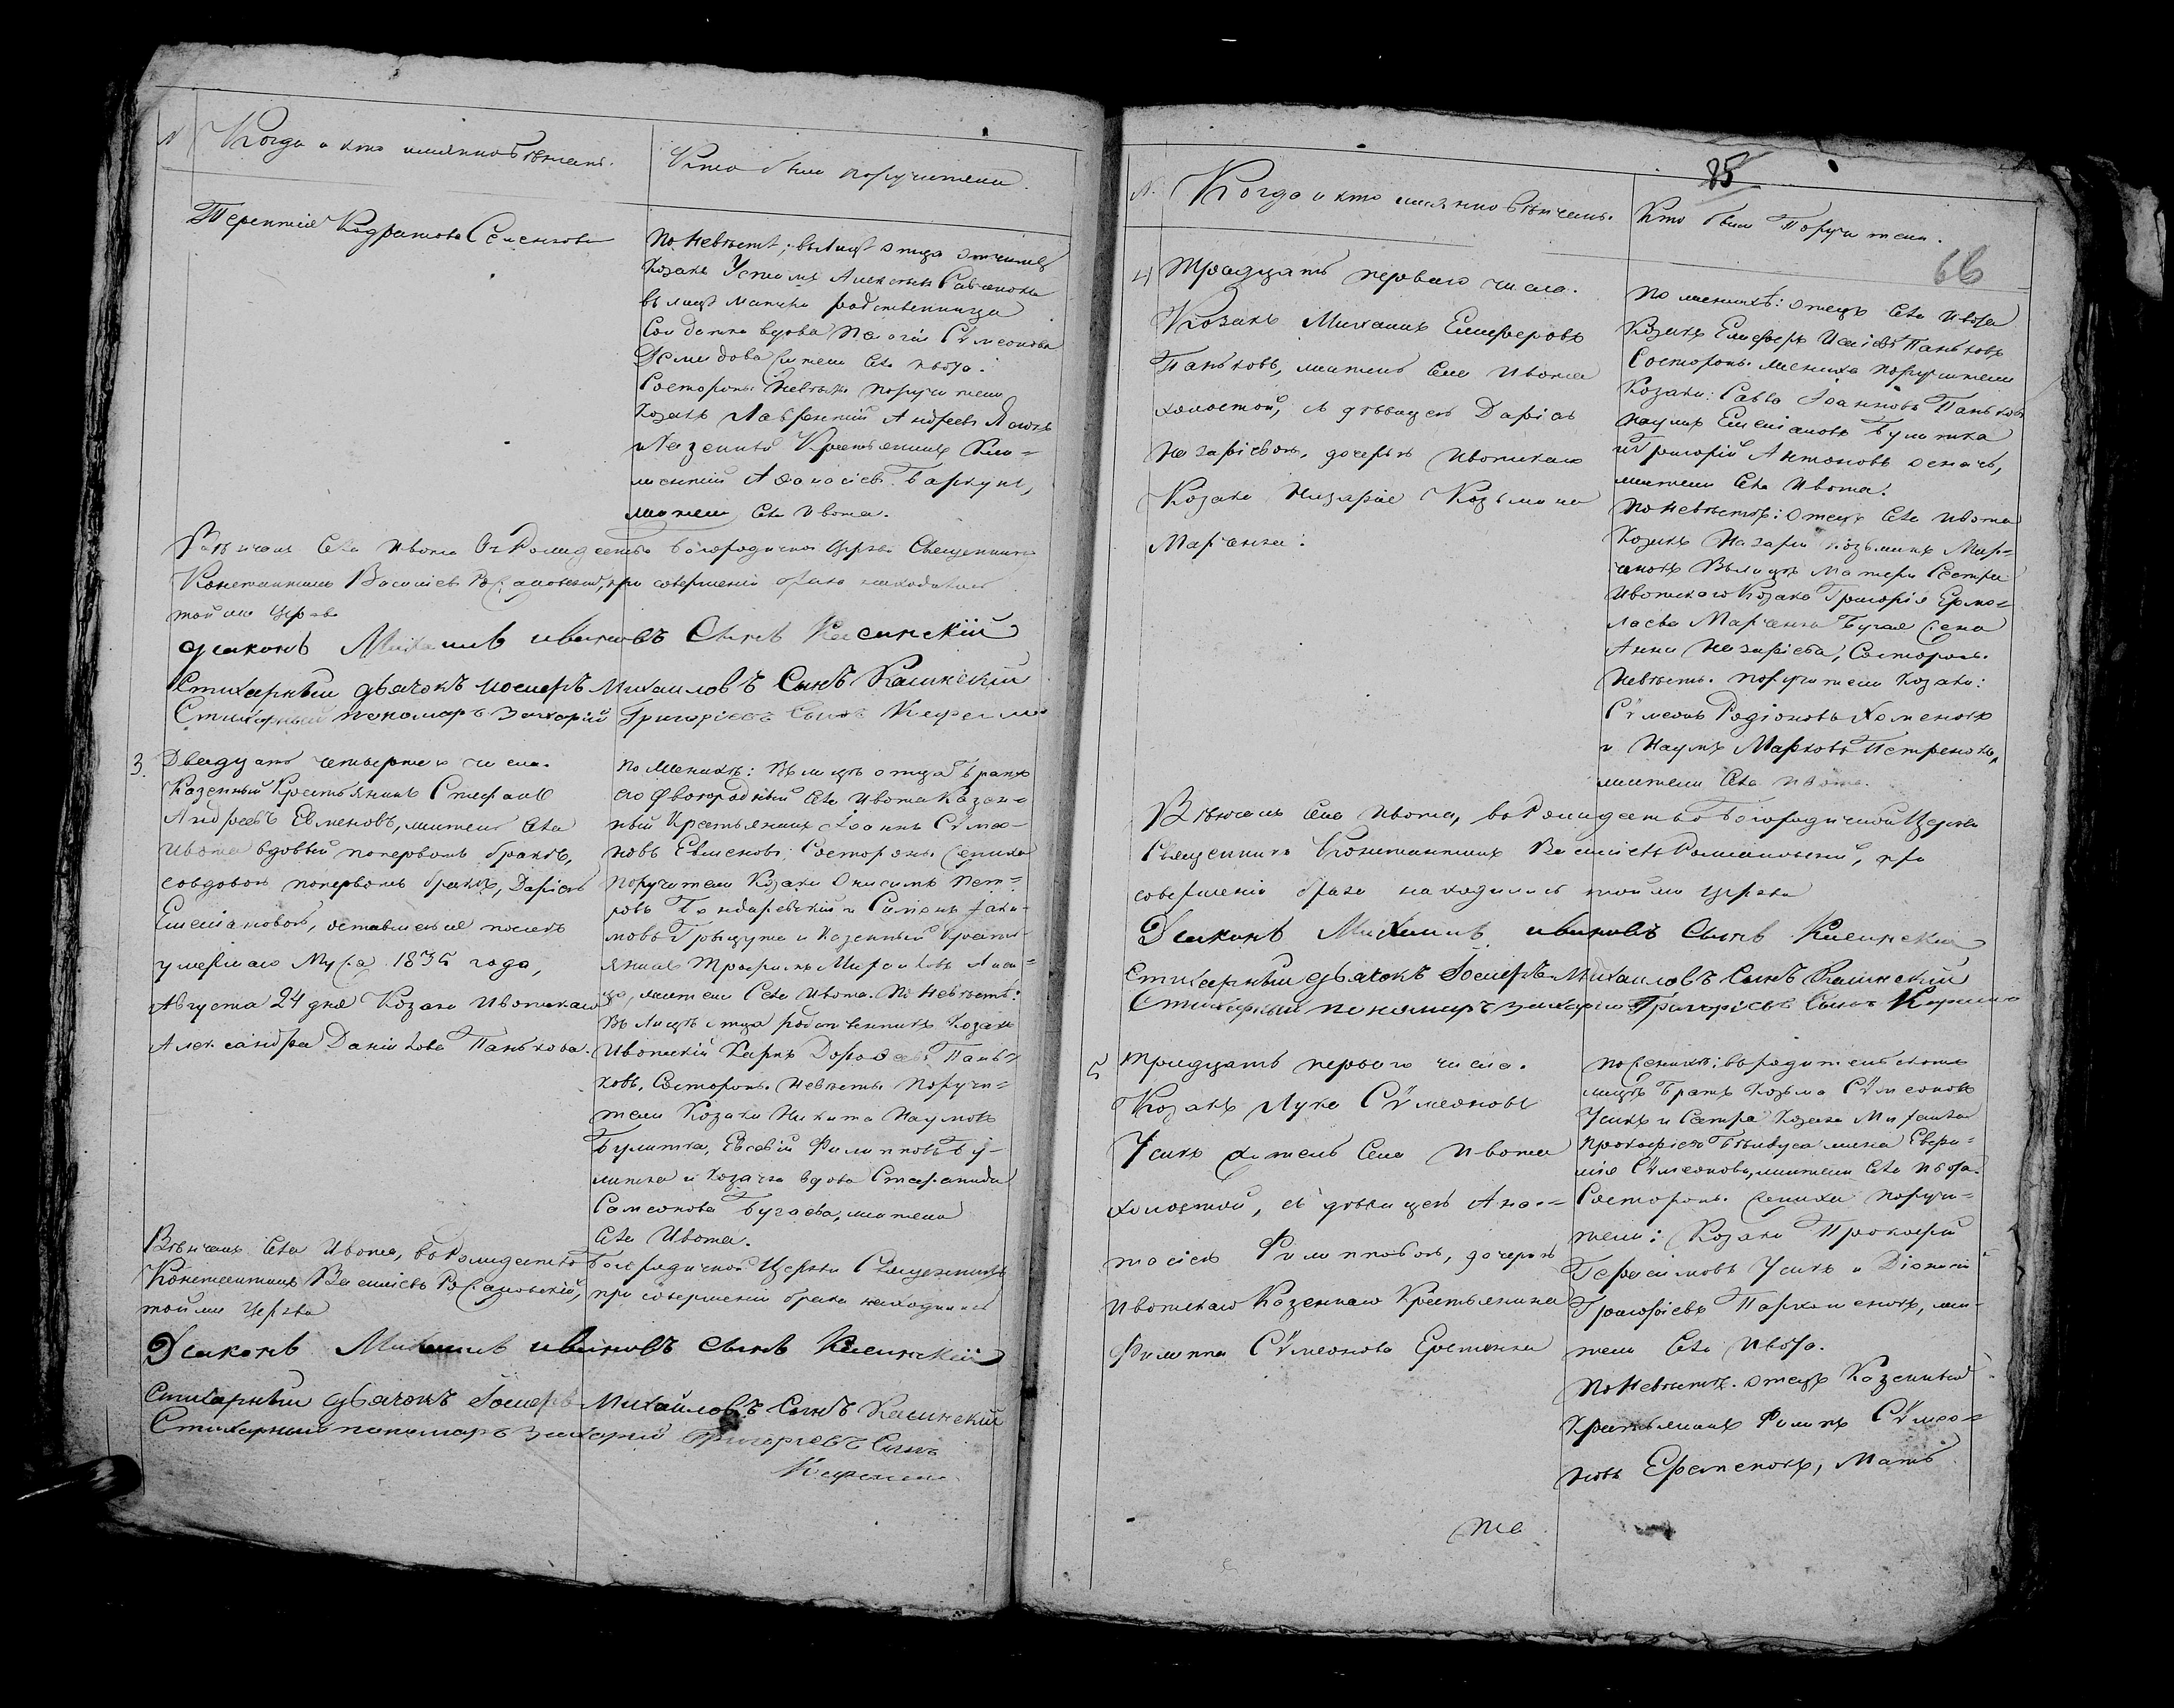 N Когда и кто имянно Вѣнчанъ. Кто были поручители.
Терентія Кодратова Селенкова
По Невѣстѣ; вь лицѣ отца отчимъ
Козакъ Алексѣевъ
въ лицѣ матери родственница
Солдатка вдова Сѵмеонова
Демидова жители Села Ивота.
Состороны Невѣсты поручители
Козакъ Лаврентій Андреевъ
и Казенный Крестьянинъ Кли=
ментій Аѳанасіевъ Бархунъ,
жители Села Ивота.
Вѣнчалъ Села Ивота Рождество Богородичной Церкви Священникъ
Константинъ Василіевъ Романовскій, при совершеніи брака находились
той же Церкви
Діаконъ Михаилъ Ивановъ Сынъ Касинскій
Стихарный дьячокъ Іосифъ Михаиловъ Сынъ Касинскій
Стихарный пономарь Захарій Григоріевъ Сынъ
3. Двадцать четвертаго числа.
Казенный Крестьянинъ Стефанъ
Андреевъ Евменовъ, житель Села
Ивота вдовый поперьвомъ бракѣ,
совдовою поперьвомъ бракѣ, Даріею
Емеліановою, оставшеюся послѣ
умершаго Мужа 183 года,
Августа 24 дня Козака Ивотскаго
Александра Даніилова Панькова.
По Женихѣ: Въ лицѣ отца братъ
его двоюродный Села Ивота Казен=
ный Крестьянинъ Іоаннъ Сѵмео=
новъ Евменовъ; Состороны Жениха
поручители Козаки Онисимъ Пет=
ровъ Бондаревскій и Симонъ Яки=
мовъ и Казенный Кресть=
янинъ Трофимъ
жители Села Ивота. По Невѣстѣ:
Въ Лицѣ отца родственникъ Козакъ
Ивотскій Карпъ Дороѳеевъ Пань=
ковъ. Состороны Невѣсты Поручи=
тели Козаки Никита Наумовъ
Булитка, Евсевій Филипповъ Бу=
литка и Козачка вдова Стефанида
Самсонова Бугаева, жители
Села Ивота.
Вѣнчалъ Села Ивота, въ Рождество Богородичной Церкви Священникъ
Константинъ Василіевъ Романовскій, при совершеніи брака находились
той же Церкви
Діаконъ Михаилъ Ивановъ Сынъ Касинскій
Стихарный дьячокъ Іосифъ Михаиловъ Сынъ Касинскій
Стихарный пономарь Захарій Григоріевъ Сынъ
85
N. Когда и кто имянно Вѣнчанъ. Кто были Поручители.
66
4 Тридцать перваго числа.
Козакъ Михаилъ Елиферовъ
Паньковъ, житель Села Ивота
холостой, съ дѣвицею Даріею
Назаріевою, дочерью Ивотскаго
Козака Назарія Козьмина
Марченка.
По женихѣ: отецъ Села Ивота
Козакъ Елиферъ Паньковъ
Состороны жениха поручители
Козаки: Савва Іоанновъ Паньковъ
Наумъ Емеліановъ Булитка
и Григорій Антоновъ
жители Села Ивота.
По Невѣстѣ: отецъ Села Ивота
Козакъ Назарій Козьминъ Мар=
ченокъ Въ лицѣ Матери Сестра
Ивотскаго Козака Григорія Ермо=
лаева Марченка Бугая Жена
Анна Назаріева; Состороны
Невѣсты поручители Козаки:
Сѵмеонъ Родіоновъ Хоменокъ
и Наумъ Марковъ Петренокъ,
жители Села Ивота.
Вѣнчалъ Села Ивота, въ Рождество Богородичной Церкви
Священникъ Константинъ Василіевъ Романовскій, при
совершеніи брака находились той же Церкви
Діаконъ Михаилъ Ивановъ Сынъ Касинскій
Стихарный дьячокъ Іосифъ Михаиловъ Сынъ Касинскій
Стихарный пономарь Захарій Григоріевъ Сынъ
5 Тридцать перваго числа.
Козакъ Лука Сѵмеоновъ
Усикъ житель Села Ивота
холостой, съ дѣвицею Ана=
тасіею Филипповою, дочерью
Ивотскаго Казеннаго Крестьянина
Филиппа Сѵмеонова
По Женихѣ: въ родительскомъ
лицѣ Братъ Козьма Сѵмеоновъ
Усикъ и Сестра Козака
Прокофіева жена Евфи=
мія Сѵмеонова, жители Села Ивота.
Состороны Жениха Поручи=
тели: Козаки Прокофій
Герасимовъ Усикъ и Діонисій
Григоріевъ Пархоменокъ, жи=
тели Села Ивота.
По Невѣстѣ. отецъ Казенный
Крестьянинъ Филипъ Сѵмео=
новъ Еременокъ, Мать
же